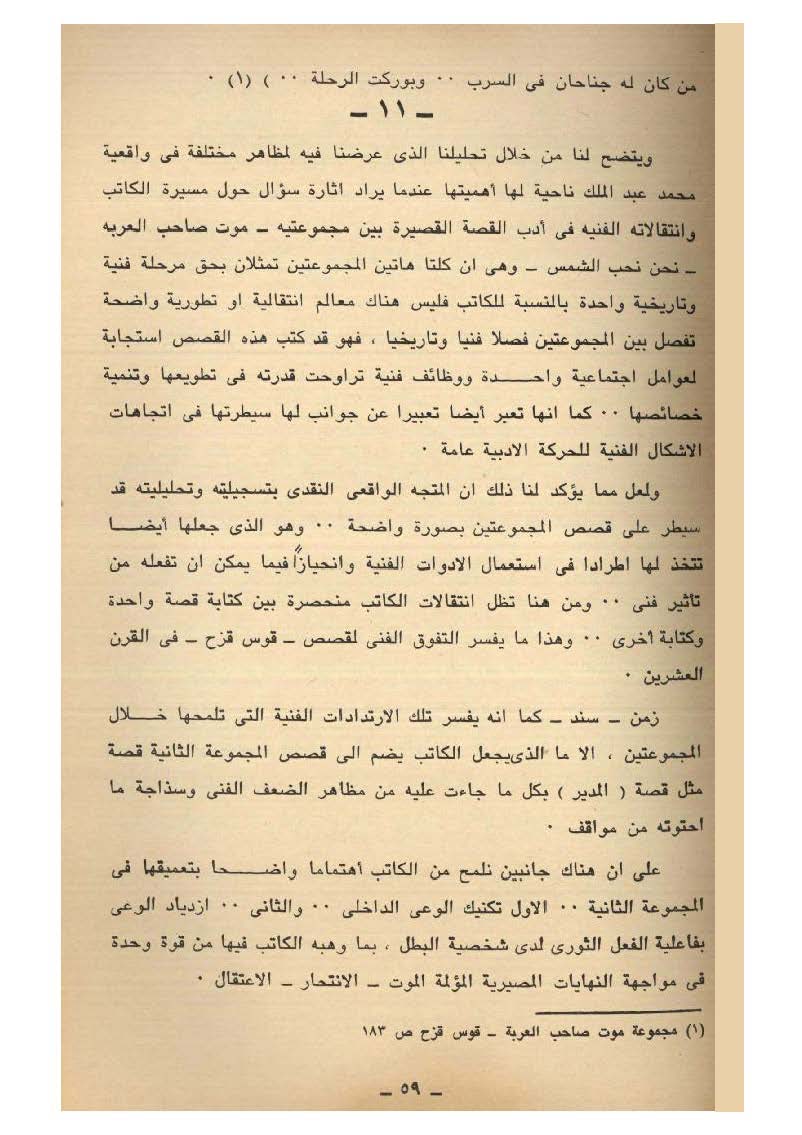 من كان له جناحان فى السرب ٠٠ وبوركت الرحلة ٠٠ ) (١) ٠
ــ ١١ ــ
ويتضح لنا من خلال تحليلنا الذى عرضنا فيه لمظاهر مختلفة فى واقعية
محمد عبد الملك ناحية لها أهميتها عندما يراد اثارة سؤال حول مسيرة الكاتب
وانتقالاته الفنيه فى أدب القصة القصيرة بين مجموعتيه ــ موت صاحب العربه
ــ نحن نحب الشمس ــ وهى ان كلتا هاتين المجموعتين تمثلان بحق مرحلة فنية
وتاريخية واحدة بالنسبة للكاتب فليس هناك معالم انتقالية او تطورية واضحة
تفصل بين المجموعتين فصلا فنيا وتاريخيا ، فهو قد كتب هذه القصص استجابة
لعوامل اجتماعية واحـــدة ووظائف فنية تراوحت قدرته فى تطويعها وتنمية
خصائصها ٠٠ كما انها تعبر أيضا تعبيرا عن جوانب لها سيطرتها فى اتجاهات
الاشكال الفنية للحركة الادبية عامة ٠
ولعل مما يؤكد لنا ذلك ان المتجه الواقعى النقدى بتسجيليته وتحليليته قد
سيطر على قصص المجموعتين بصورة واضحة ٠٠ وهو الذى جعلها أيضـــا
تتخذ لها اطرادا فى استعمال الادوات الفنية وانحيازاً فيما يمكن ان تفعله من
تأثير فنى ٠٠ ومن هنا تظل انتقالات الكاتب منحصرة بين كتابة قصة واحدة
وكتابة أخرى ٠٠ وهذا ما يفسر التفوق الفنى لقصص ــ قوس قزح ــ فى القرن
العشرين ٠
زمن ــ سند ــ كما انه يفسر تلك الارتدادات الفنية التى تلمحها خـــلال
المجموعتين ، الا ما الذى يجعل الكاتب يضم الى قصص المجموعة الثانية قصة
مثل قصة ( المدير ) بكل ما جاءت عليه من مظاهر الضعف الفنى وسذاجة ما
احتوته من مواقف ٠
على ان هناك جانبين نلمح من الكاتب أهتماما واضـــحا بتعميقها فى
المجموعة الثانية ٠٠ الاول تكنيك الوعى الداخلى ٠٠ والثانى ٠٠ ازدياد الوعى
بفاعلية الفعل الثورى لدى شخصية البطل ، بما وهبه الكاتب فيها من قوة وحدة
فى مواجهة النهايات المصيرية المؤلمة الموت ــ الانتحار ــ الاعتقال ٠
(١) مجموعة موت صاحب العربة ــ قوس قزح ص ١٨٣
ــ ٥٩ ــ